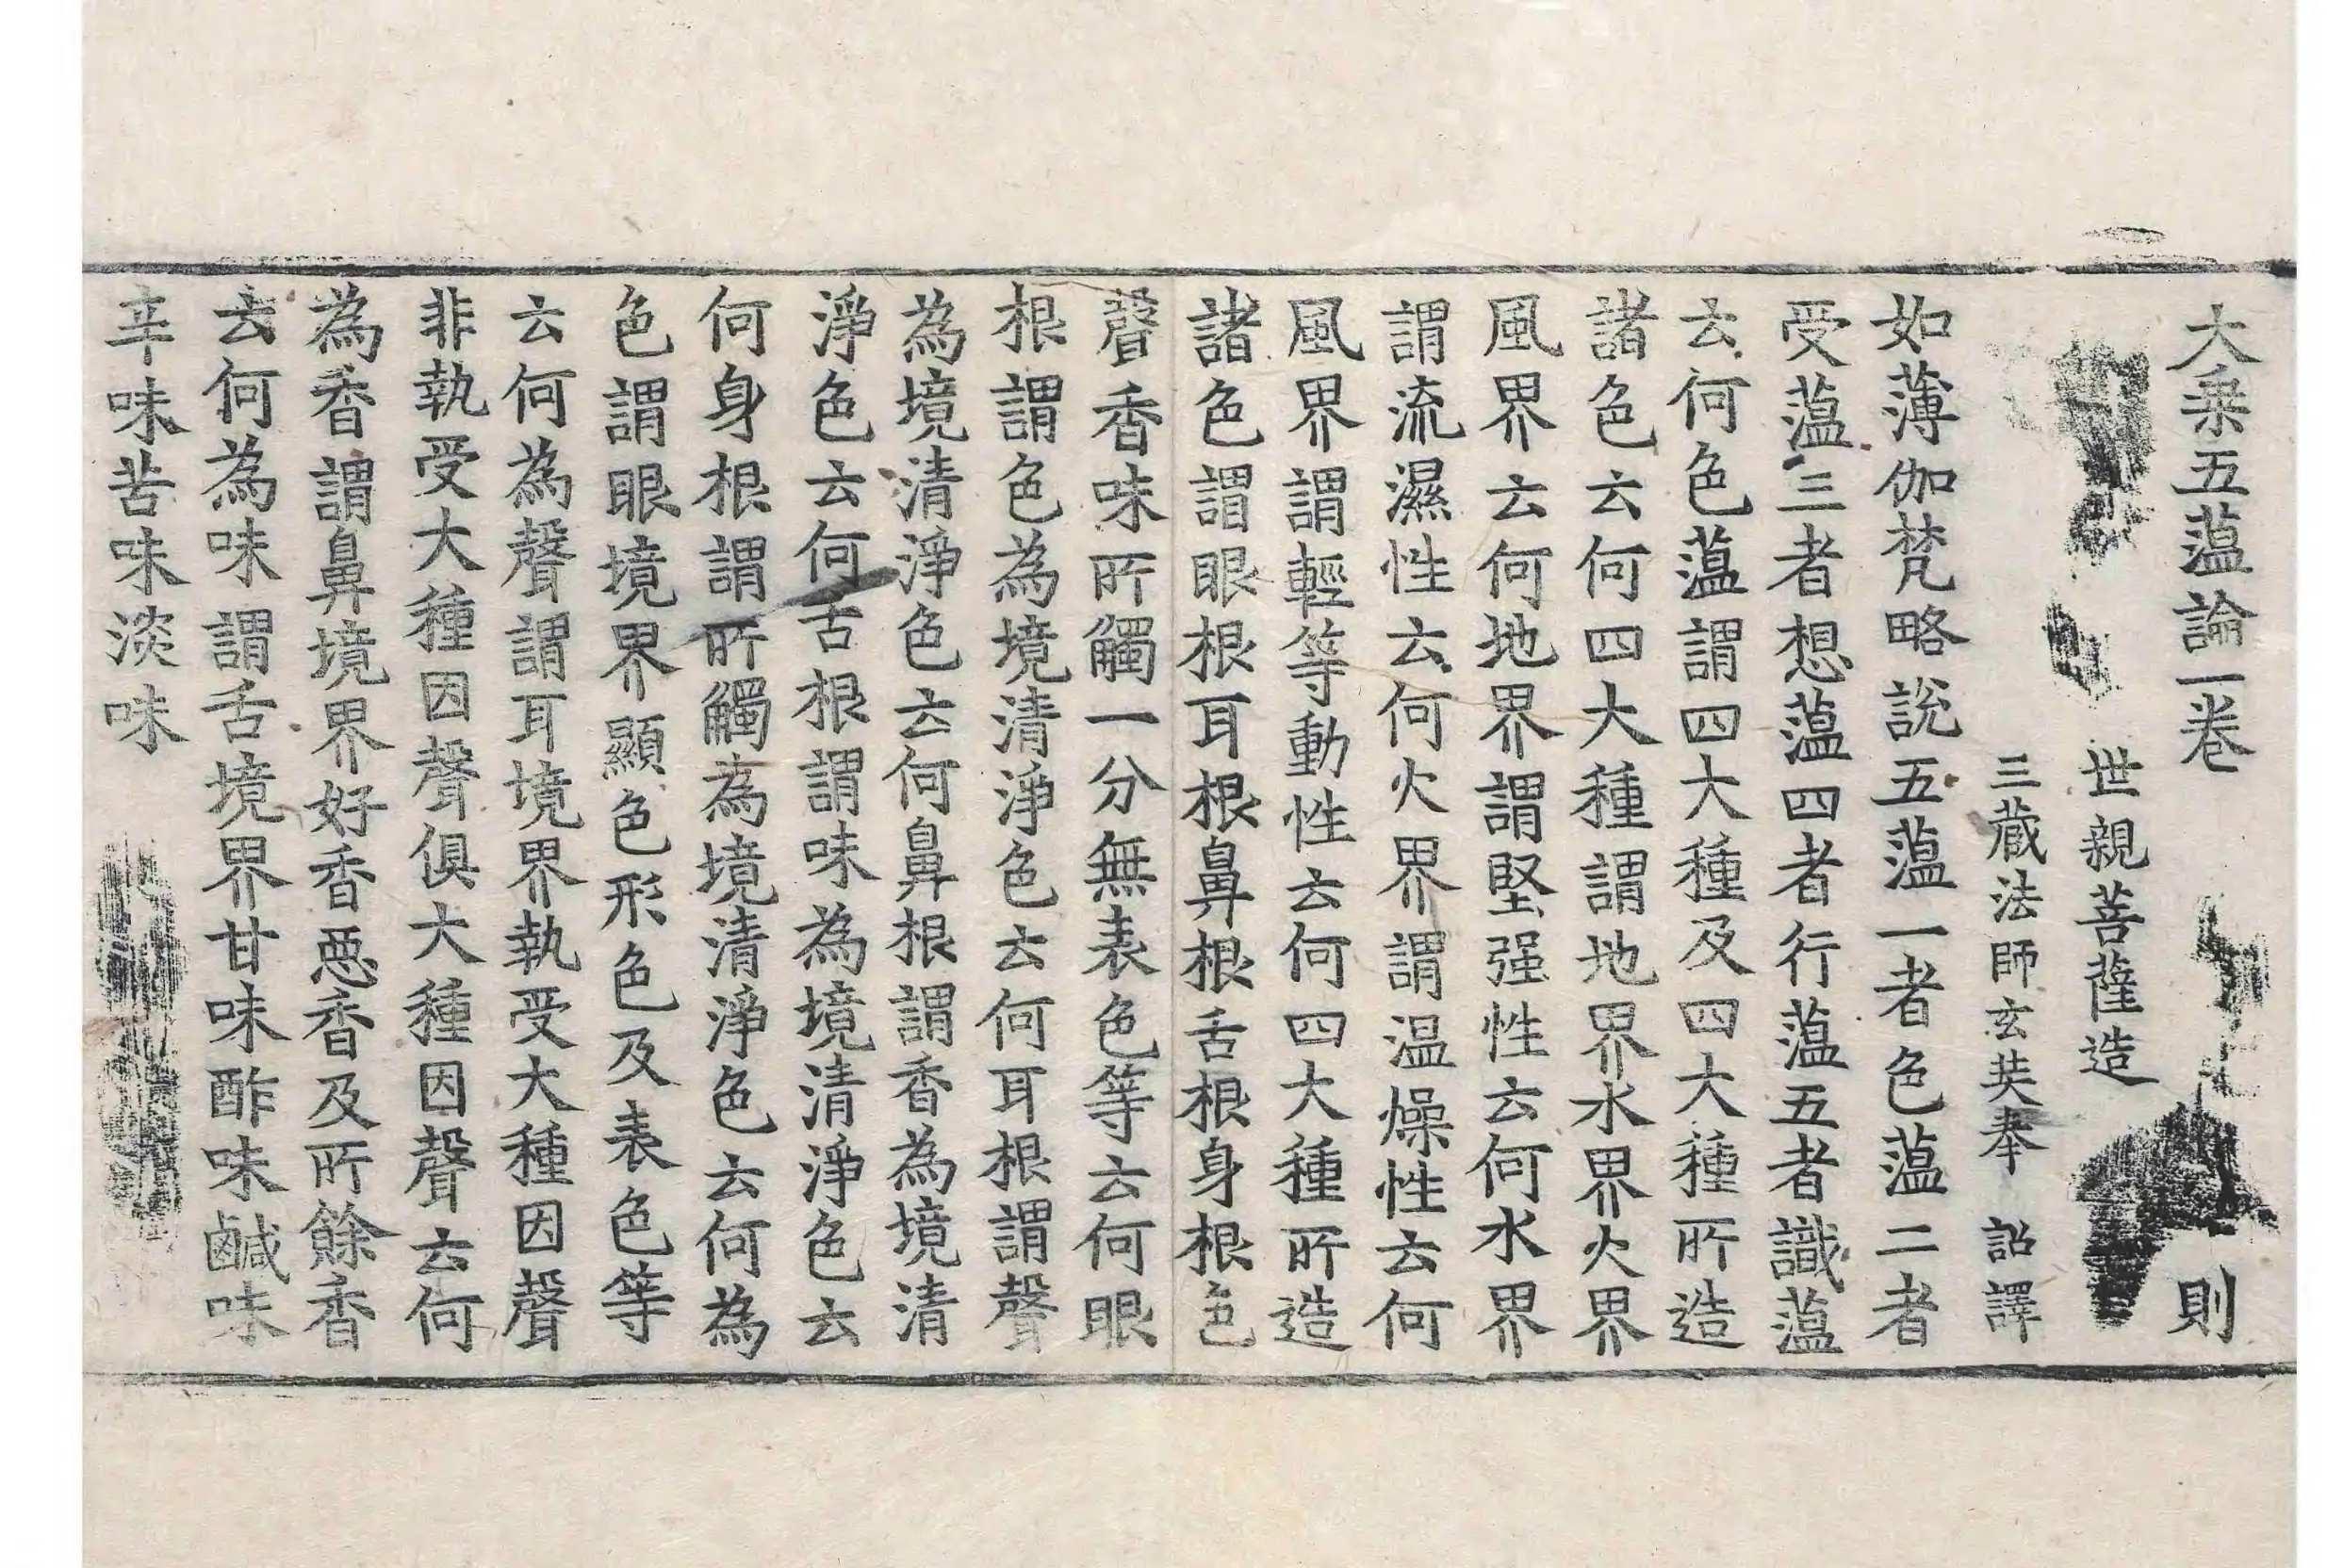 大乗五蕰論一卷 則
世親菩薩造
三蔵法師玄奘奉 詔譯
如薄伽梵略說五蕰一者色蕰二者
受蕰三者想蕰四者行蕰五者識蕰
云何色蕰謂四大種及四大種所造
諸色云何四大種謂地界水界火界
風界云何地界謂堅强性云何水界
謂流濕性云何火界謂温燥性云何
風界謂輕等動性云何四大種所造
諸色謂眼根耳根鼻根舌根身根色
聲香味所觸一分無表色等云何眼
根謂色為境清淨色云何耳根謂聲
為境清淨色云何鼻根謂香為境清
淨色云何舌根謂味為境清淨色云
何身根謂所觸為境清淨色云何為
色謂眼境界顯色形色及表色等
云何為聲謂耳境界執受大種因聲
非執受大種因聲俱大種因聲云何
為香謂鼻境界好香悪香及所餘香
云何為味謂舌境界甘味酢味鹹味
辛味苦味淡味